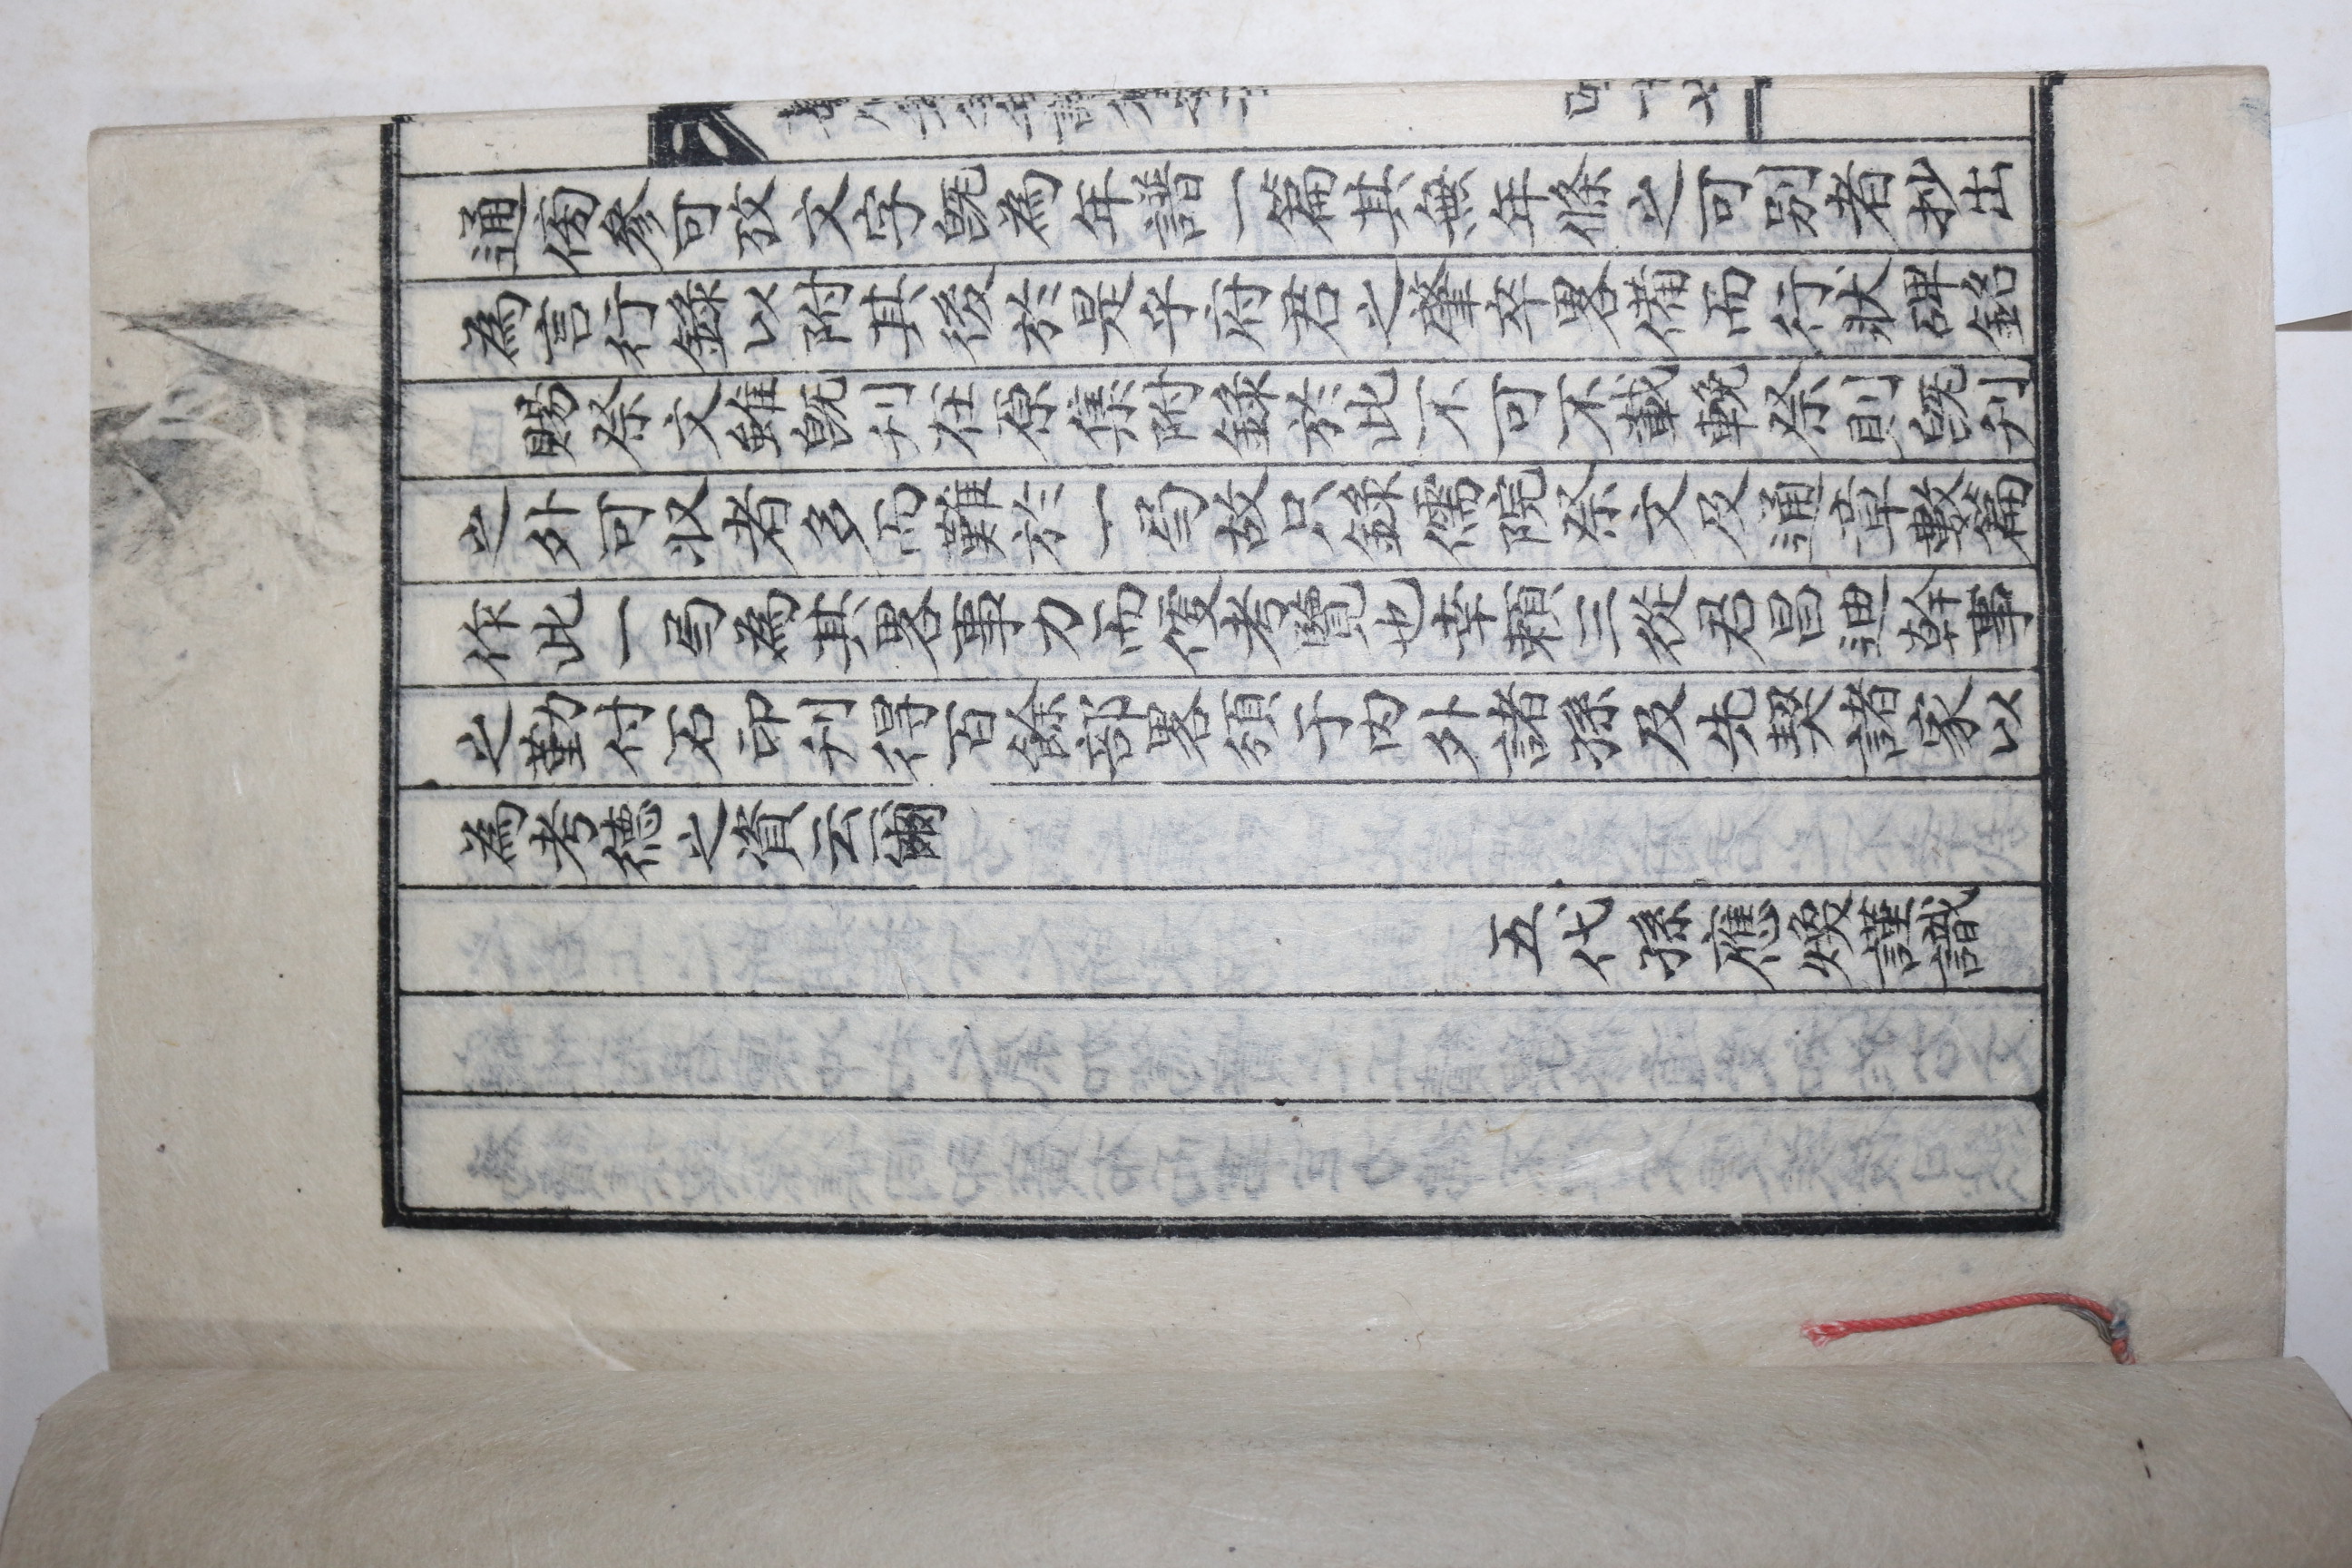 通傍參可攷文字旣為年譜一篇其無年條之可別者抄出
為言行錄以附其後於是乎府君之肇卒畧備而行狀碑銘
賜祭文雖旣刋在原集附錄於此不可不載輓祭則旣刋
之外可収者多而難於一局故只錄儒院祭文及通章數篇
作此一局為其畧事力而便考覽也幸賴三從君昌迪幹事
之勤付石印刋得百餘部畧頒于內外諸孫及先契諸家以
為考德之資云爾
五代孫應煥謹識
四十七